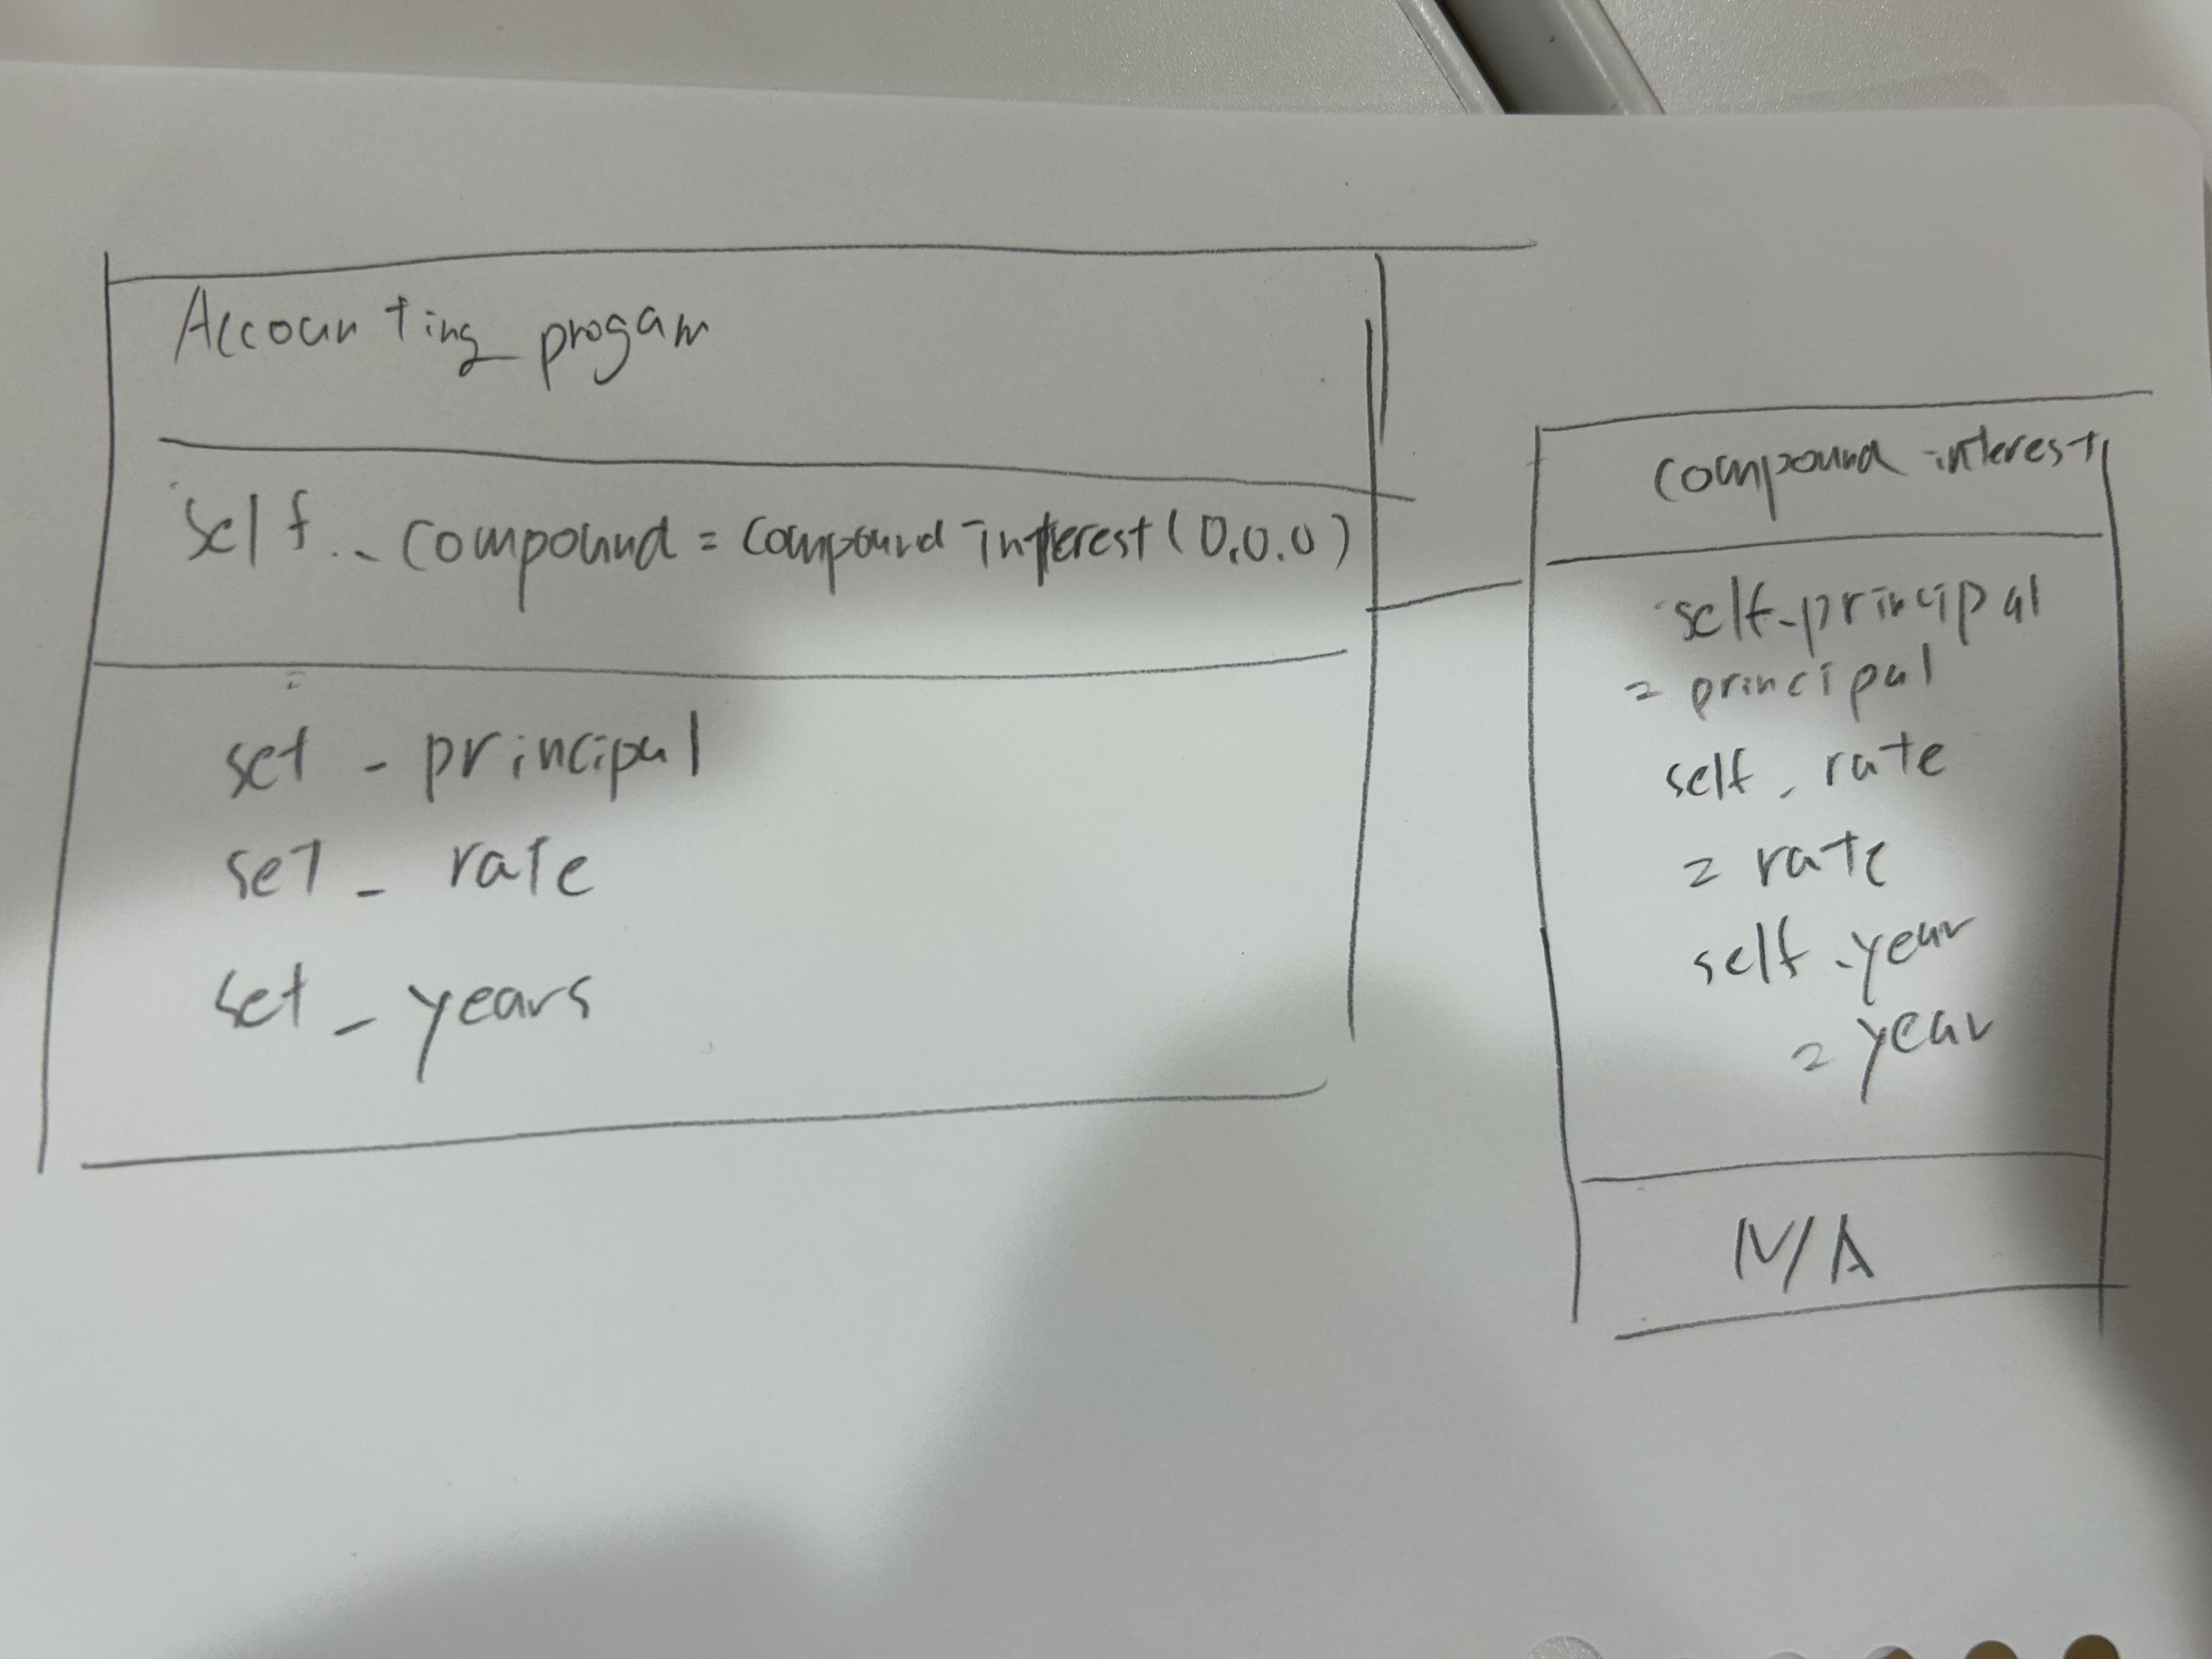 Accounting_progam
self._compound = compound interest (0.0.0)
set_principal
set_rate
set_years
compound interest
self_principal
= principal
self_rate
= rate
self_year
= year
N/A